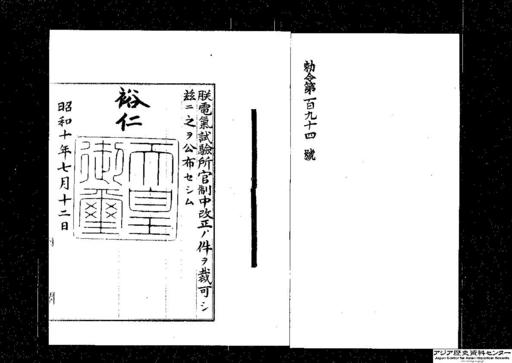 勅令第百九十四號
朕電氣試驗所官制中改正ノ件ヲ裁可シ
玆ニ之ヲ公布セシム
裕仁
天皇
御璽
昭和十年七月十二日
アジア歴史資料センター
Japan Center for Asian Historical Records